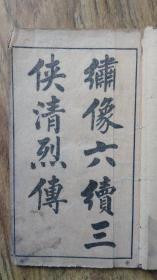 繡像六續三
俠清烈傳